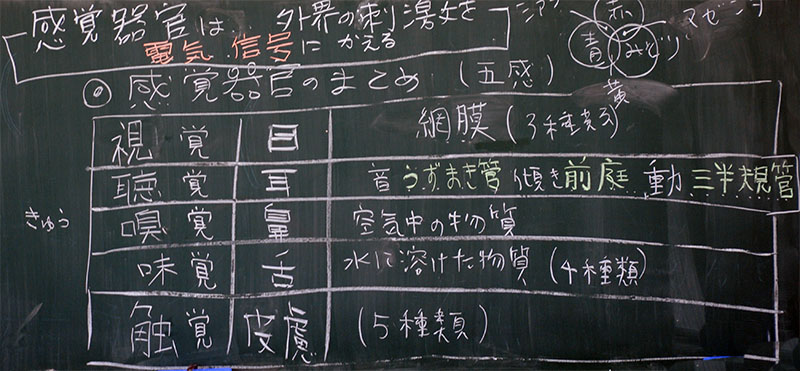 感覚器官は 外界の刺激を
電気信号にかえる
シアン 赤 マゼンタ
青 みどり
黄
◎感覚器官のまとめ (五感)
視覚 目 網膜(3種類)
聴覚 耳 音 うずまき管 傾き 前庭 動 三半規管
きゅう 嗅覚 鼻 空気中の物質
味覚 舌 水に溶けた物質(4種類)
触覚 皮膚 (5種類)